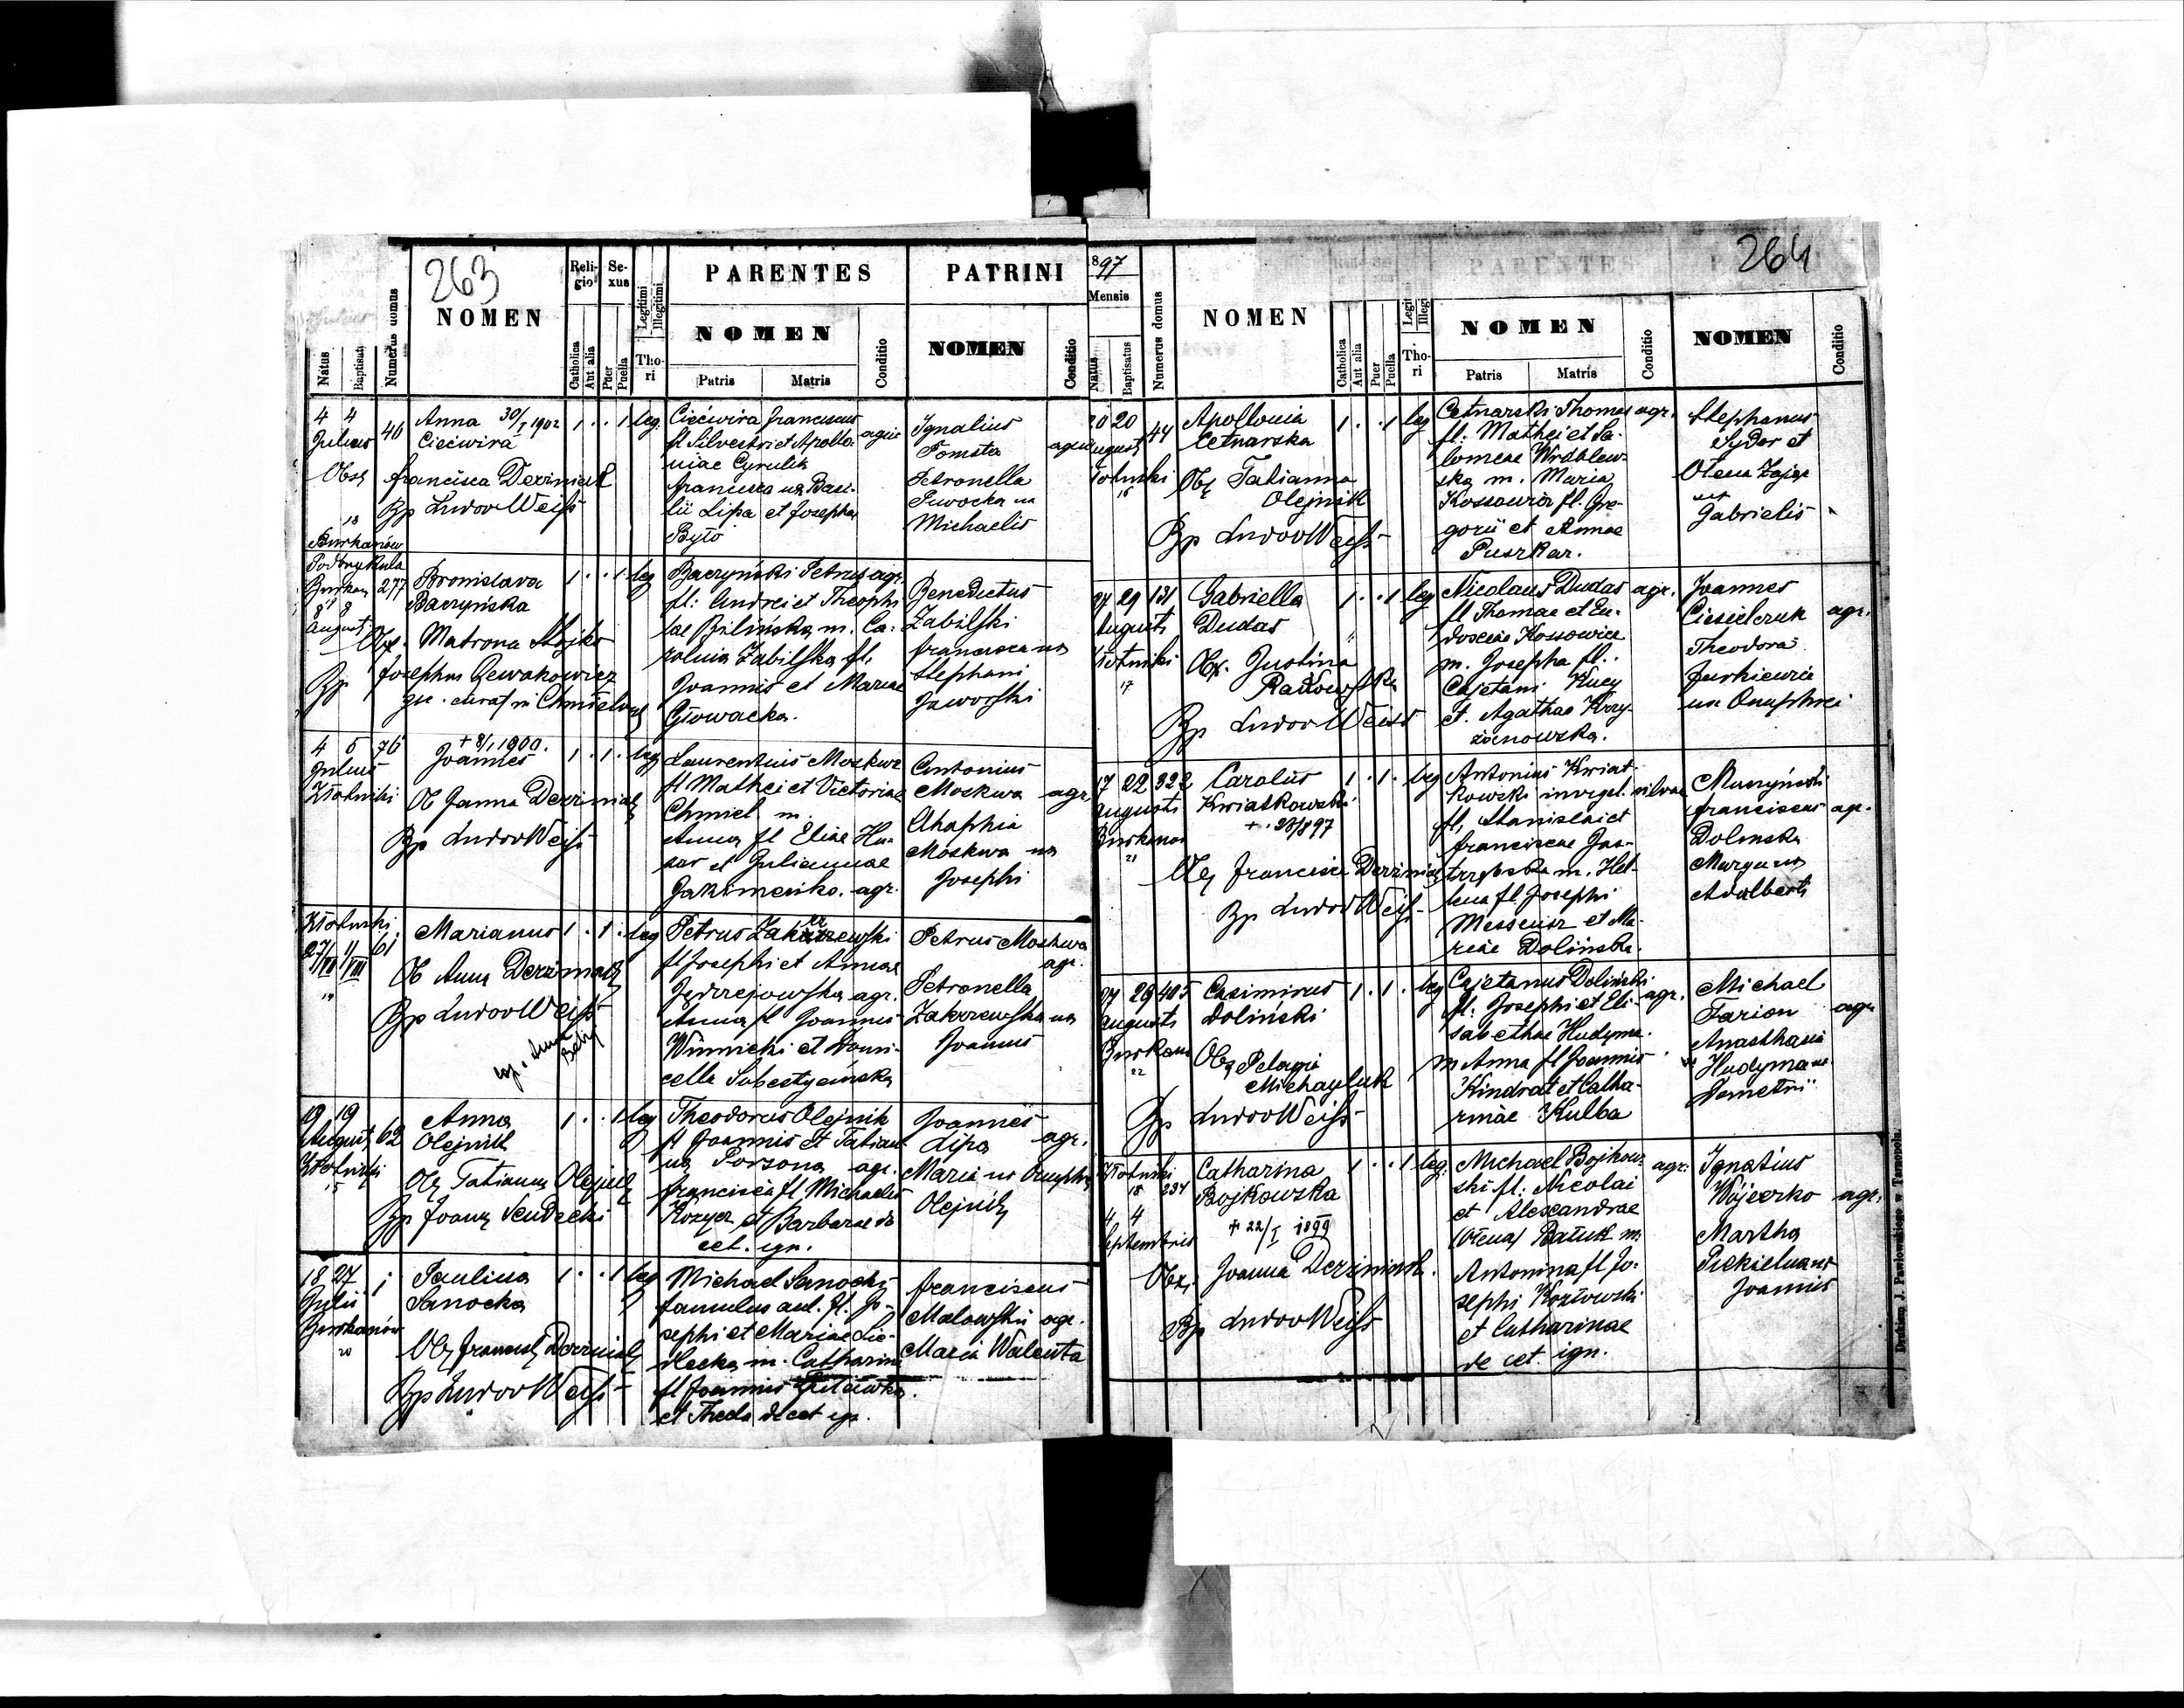 263
Julius
Natus
Baptisatus
Numerus domus
NOMEN
Religio
Catholica
Aut alia
Sexus
Puer
Puella
Legitimi
Illegitimi
Thori
PARENTES
NOMEN
Patris
Matris
Conditio
PATRINI
NOMEN
Conditio
4 4
Julius
40
Anna 30/I 1902
Ciećwira
1 . . 1 leg.
Obst francisca Derziniak
Bp Ludov Weiss
18
Burkanów
Ciećwira franciscus
fl Silvestri et Apollo
niae Cyrulik
francisca na Basi-
lii Lipa et Josepha
Byto
Ignatius
Tomsta
Petronella
Surocka na
Michaelis
Burkan
8 8
Augusti
277
Bronislava
Baczyńska
1 . . 1 leg
Obx. Matrona Stojko
Bp Josephus Gewakowicz
gr. curat in
Baczyński Petrus agr.
fl: Andrei et Theophi
lae Bilińska m. Ca:
rolina Zabilska fl,
Joannis et Mariae
Głowacka.
Benedictus
Zabilski
francisca na
Stephani
Jaworski
4 5 76
Julius
Złotniki
+ 8/1 1900.
Joannes
1 . 1 . leg
Ob Janna Derziniak
Bp Ludov Weiss
Laurentius Moskwa
fl Mathei et Victoriae
Chmiel m.
Anna fl Eliae Hu-
sar et Juliannae
Jakimenko. agr.
Antonius
Moskwa agr
Ahaphia
Moskwa na
Josephi
Złotniki
27/VII 1/VIII 61
19
Marianus 1 . 1 . leg
Ob Anna Derziniak
Bp Ludov Weiss
Petrus Zakrzewski
fl Josephi et Annae
Jędrzejowska agr.
Anna fl Joannis
Winnicki et Domi-
cella Sobestyańska
Petrus Moskwa
agr.
Petronella
Zakrzewska na
Joannis
19 19
Augusti 62
Złotniki
15
Anna
Olejnik
1 . . 1 leg
Ob Tatianna Olejnik
Bp Joann Sendecki
Theodorus Olejnik
fl Joannis et Tatian
na Porzona agr.
francisca fl Michaelis
Kozyra et Barbarae de
cet. ign.
Joannes
Lipa agr.
Maria na Onuphrii
Olejnik
18 27 1
Julii
Burkanów
20
Paulina
Sanocka
1 . . 1 leg
Ob francisca Derziniak
Bp Ludov Weiss
Michael Sanocki
famulus aul. fl. Jo-
sephi et Mariae Sie-
dlecka m. Catharina
fl Joannis
et Thecla de cet ign.
franciscus
Malowski agr.
Maria Walenta
264
1897
Mensis
Natus
Baptisatus
Numerus domus
NOMEN
Catholica
Aut alia
Puer
Puella
Legiti
Illegi
Thori
PARENTES
NOMEN
Patris
Matris
Conditio
NOMEN
Conditio
20 20 44
Augusti
Złotniki
16
Apollonia
Cetnarska
1 . . 1 leg
Ob Tatianna
Olejnik
Bp Ludov Weiss
Cetnarski Thomas agr.
fl: Mathei et Sa-
lomeae Wróblew-
ska m. Maria
Kossowicz fl. Gre-
gorii et Annae
Puszkar.
Stephanus
Sydor et
Olena Zając
ux
Gabrielis
27 29 131
Augusti
Złotniki
17
Gabriella
Dudas
1 . . 1 leg
Obx. Justina
Radowska
Bp Ludov Weiss
Nicolaus Dudas agr.
fl Thomae et Eu-
dosciae Kossowicz
m. Josepha fl.:
Cajetani Kucy
et. Agathae Krzy-
żanowska.
Joannes
Ciesielczuk agr.
Theodora
Jurkiewicz
ux Onuphrei
17 22 322
Augusti
Burkanow
21
Carolus
Kwiatkowski
+. 23/8 97
1 . 1 . leg
Ob francisca Derziniak
Bp Ludov Weiss
Antonius Kwiat-
kowski invigil. silvae
fl, Stanislai et
franciscae Jas-
trzębska m. Hel-
lena fl Josephi
Messensz et Ma-
riae Dolińska.
Muszyński
franciscus agr.
Dolinska
Adalberti
27 29 405
Augusti
Burkanow
22
Casimirus
Doliński
1 . 1 . leg
Ob Pelagia
Michayluk
Bp Ludov Weiss
Cajetanus Doliński
fl. Josephi et Eli- agr.
sabethae Hudyma.
m Anna fl Joannis
Kindrat et Catha-
rinae Kulba
Michael
Farion agr
Anasthasia
Hudyma ux
Demetrii
Złotniki
18 234
4 4
Septembris
Catharina
Bojkowska
+ 22/I 1899
1 . . 1 leg.
Obx. Joanna Derziniak.
Bp Ludov Weiss
Michael Bojkow- agr.
ski fl: Nicolai
et Alexandrae
(Olena) Batuk m.
Antonina fl Jo-
sephi Kozłowski
et Catharinae
de cet. ign.
Ignatius
Wojceczko agr.
Martha
Piekielna ux
Joannis
Drukiem J. Pawłowskiego w Tarnopolu.